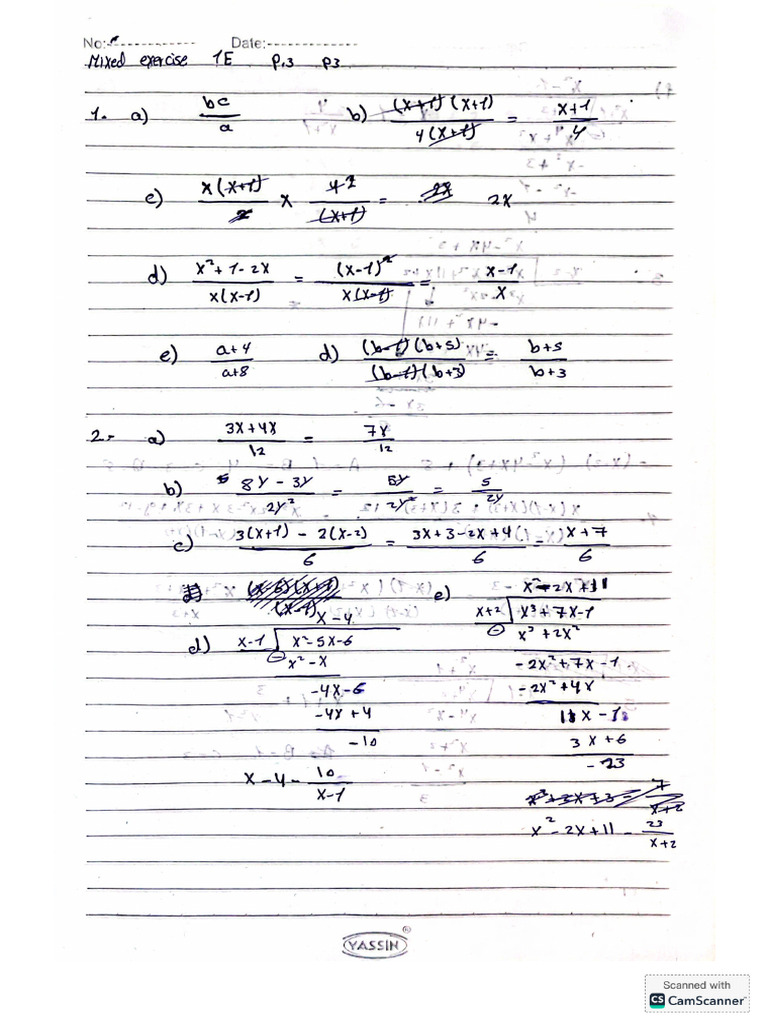 No: Date:
Mixed exercise 1E P.3 P3
1. a) bc/a b) (x+1)(x+1)/4(x+1) = x+1/4
c) x(x+1)/2 x 4 2/(x+1) = 2x 2x
d) x²+1-2x/x(x-1) = (x-1)²/x(x-1) = x-1/x
e) a+4/a+8 d) (b-1)(b+5)/(b-1)(b+3) = b+5/b+3
2- a) 3x+4x/12 = 7x/12
b) 8y-3y/2y² = 5y/2y² = 5/2y
c) 3(x+1) - 2(x-2)/6 = 3x+3-2x+4/6 = x+7/6
x-4 e) x²-2x+11
d) x-1 x²-5x-6 x+2 x³+7x-1
x²-x x³+2x²
-4x-6 -2x²+7x-1
-4x+4 -2x²+4x
-10 11x-1
3x+6
-23
x-4- 10/x-1
x²-2x+11 - 23/x+2
YASSIN
Scanned with
CS CamScanner